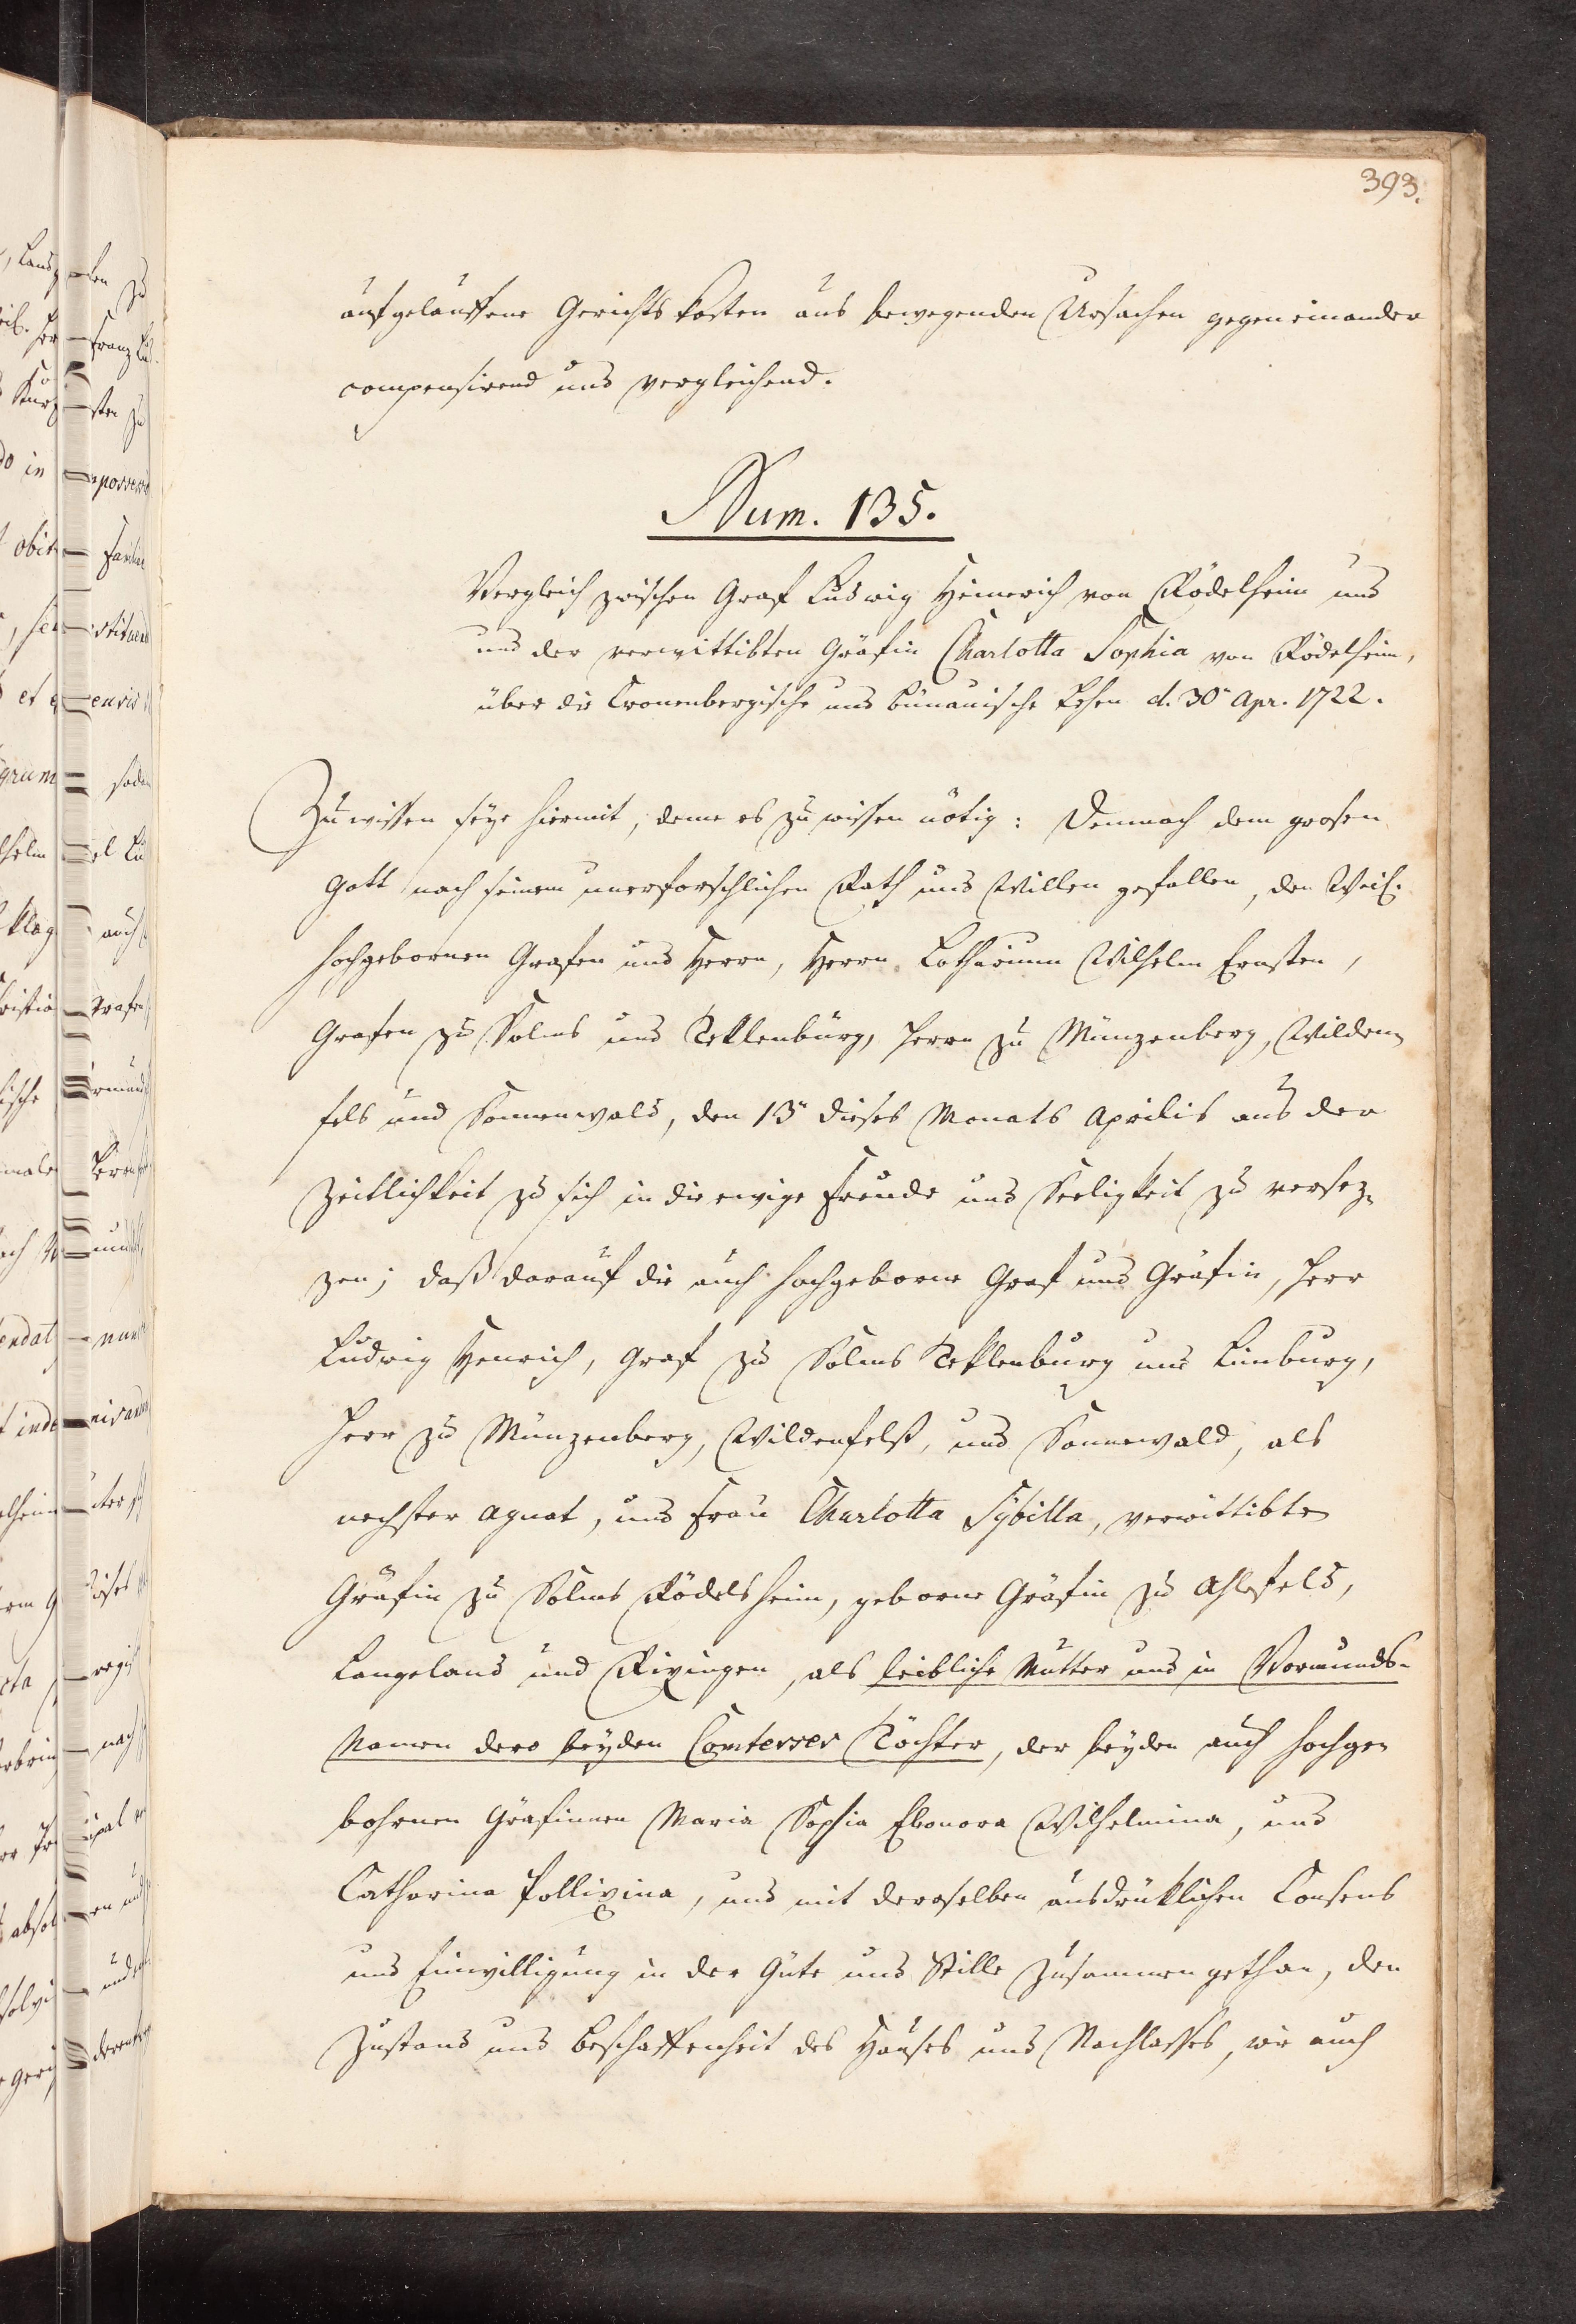 393.
aufgelauffene Gerichts kosten aus bewegenden Ursachen gegeneinander
compensirend und vergleichend.
Num. 135.
Vergleich zwischen Graf Ludwig Heinrich von Rödelheim und
und der verwittibten Gräfin Charlotta Sophia von Rödelheim,
über die Cronenbergische und Bünauische Lehen d. 30n Apr. 1722.
Zu wissen seye hiermit, deme es zu wissen nötig: Demnach dem grosen
Gott nach seinem unerforschlichen Rath und Willen gefallen, den Weil.
hochgebornen Grafen und Herrn, Herrn Lotharium Wilhelm Ernsten,
Grafen zu Solms und Teklenburg, Herrn zu Münzenberg, Wilden-
fels und Sonnenwald, den 13n dieses Monats Aprilis aus der
Zeitlichkeit zu sich in die ewige Freude und Seeligkeit zu versez-
zen; daß darauf die auch hochgeborne Graf und Gräfin, Herr
Ludwig Henrich, Graf zu Solms Teklenburg und Limburg,
Herr zu Münzenberg, Wildenfelß, und Sonnewald, als
nechster Agnat, und Frau Charlotta Sybilla, verwittibte
Gräfin zu Solms Rödelsheim, geborne Gräfin zu Ahlefeld,
Langeland und Rixingen, als leibliche Mutter und in Vormunds-
Namen dero beyden Comtesses Töchter, der beyden auch hochge-
bohrnen Gräfinnen Maria Sophia Eleonora Wilhelmina, und
Catharina Pollixina, und mit deroselben ausdrüklichen Consens
und Einwilligung in der Güte und Stille zusammen gethan, den
Zustand und Beschaffenheit des Hauses und Nachlasses, wie auch